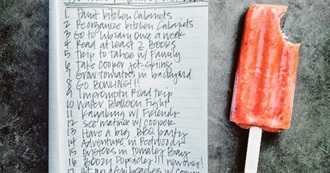 1 Paint Kitchen Cabinets
2 Reorganize Kitchen Cabinets
3 Go to library once a week
4 Read at least 2 Books
5 Trip to Tahoe w/ Family
6 Take Cooper Jet-Skiing
7 Grow tomatoes in backyard
8 GO BOWLING!!!
9 Impromptu Road trip
10 Water Balloon Fight!
11 Kayaking w/ Friends
12 See nature w/ Cooper
13 Have a big BBQ party
14 Adventure in Redwoods
15 Oysters in Tomales Bay
16 Boozy Popsicles!!!